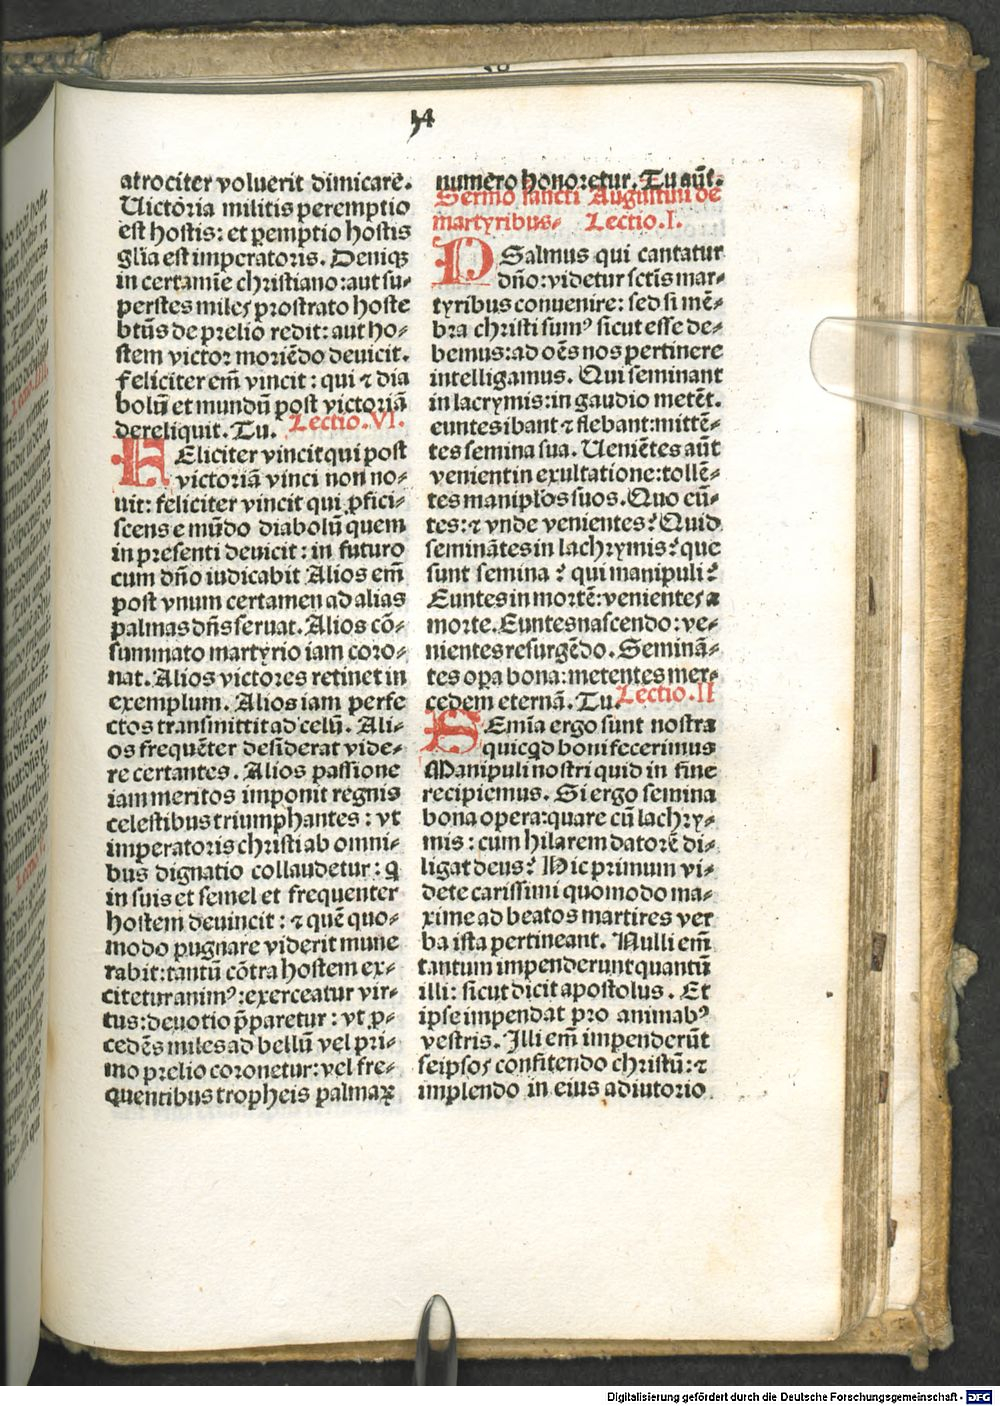 54
atrociter voluerit dimicare.
Uictoria militis peremptio
est hostis: et ꝑemptio hostis
gl̄ia est imperatoris. Deniqꝫ
in certamīe christiano: aut su⸗
perstes miles prostrato hoste
bt̄us de prelio redit: aut ho⸗
stem victor moriēdo deuicit.
feliciter em̄ vincit: qui ⁊ dia
bolū et mundū post victoriā
dereliquit. Tu. Lectio. VI.
FEliciter vincit qui post
victoriā vinci non no⸗
uit: feliciter vincit qui ꝓfici⸗
scens e mūdo diabolū quem
in presenti deuicit: in futuro
cum dn̄o iudicabit Alios em̄
post vnum certamen ad alias
palmas dn̄s seruat. Alios cō⸗
summato martyrio iam coro⸗
nat. Alios victores retinet in
exemplum. Alios iam perfe
ctos transmittit ad celū. Ali⸗
os frequēter desiderat vide⸗
re certantes. Alios passione
iam meritos imponit regnis
celestibus triumphantes: vt
imperatoris christi ab omni⸗
bus dignatio collaudetur: q
in suis et semel et frequenter
hostem deuincit: ⁊ quē quo⸗
modo pugnare viderit mune
rabit: tantū cōtra hostem ex⸗
citetur animꝰ: exerceatur vir⸗
tus: deuotio p̄paretur: vt ꝓ⸗
cedēs miles ad bellū vel pri⸗
mo prelio coronetur: vel fre⸗
quentibus tropheis palmaꝝ
numero honoretur. Tu aūt.
Sermo sancti Augustini de
martyribus⸗ Lectio. I.
PSalmus qui cantatur
dn̄o: videtur sctis mar⸗
tyribus conuenire: sed si mē⸗
bra christi sumꝰ sicut esse de⸗
bemus: ad oēs nos pertinere
intelligamus. Qui seminant
in lacrymis: in gaudio metēt.
euntes ibant ⁊ flebant: mittē⸗
tes semina sua. Ueniētes aūt
venient in exultatione: tollē⸗
tes maniplos suos. Quo eū⸗
tes: ⁊ vnde venientes? Quid
seminātes in lachrymis? que
sunt semina? qui manipuli?
Euntes in mortē: venientes a
morte. Euntes nascendo: ve⸗
nientes resurgēdo. Seminā⸗
tes oꝑa bona: metentes mer⸗
cedem eternā. Tu. Lectio. II
SEmīa ergo sunt nostra
quicqd boni fecerimus
Manipuli nostri quid in fine
recipiemus. Si ergo semina
bona opera: quare cū lachry⸗
mis: cum hilarem datorē di⸗
ligat deus? Hic primum vi⸗
dete carissimi quomodo ma⸗
xime ad beatos martires ver
ba ista pertineant. Nulli em̄
tantum impenderunt quantū
illi: sicut dicit apostolus. Et
ipse impendar pro animabꝰ
vestris. Illi em̄ impenderūt
seipsos confitendo christū: ⁊
implendo in eius adiutorio
Digitalisierung gefördert durch die Deutsche Forschungsgemeinschaft - DFG